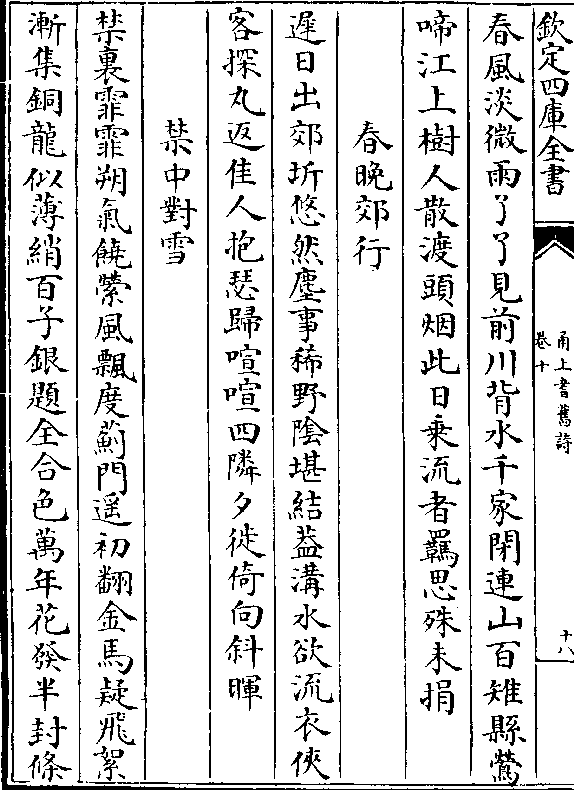 欽定四庫全書
甬上耆舊詩
卷十
十八
春風淡微雨了了見前川背水千家閉連山百雉縣鶯
啼江上樹人散渡頭烟此日乗流者羈思殊未捐
春晚郊行
遲日出郊圻悠然塵事稀野陰堪結葢溝水欲流衣俠
客探丸返佳人抱瑟歸喧喧四隣夕徙倚向斜暉
禁中對雪
禁裏霏霏朔氣饒縈風飄度薊門遥初翻金馬疑飛絮
漸集銅龍似薄綃百子銀題全合色萬年花發半封條